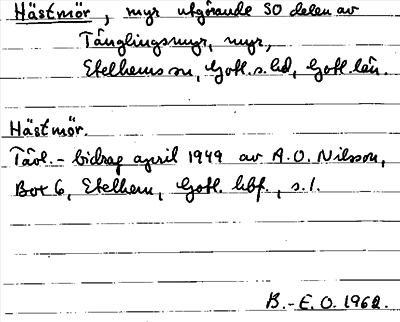 Hästmör, myr utgörande SO delen av
Tänglingsmyr, myr,
Etelhems sn, Gotl. s. hd, Gotl. län.
Hästmör.
Tävl.-bidrag april 1949 av A.O. Nilsson,
Box 6, Etelhem, Gotl. hbf., s. 1.
B.-E. O. 1962.